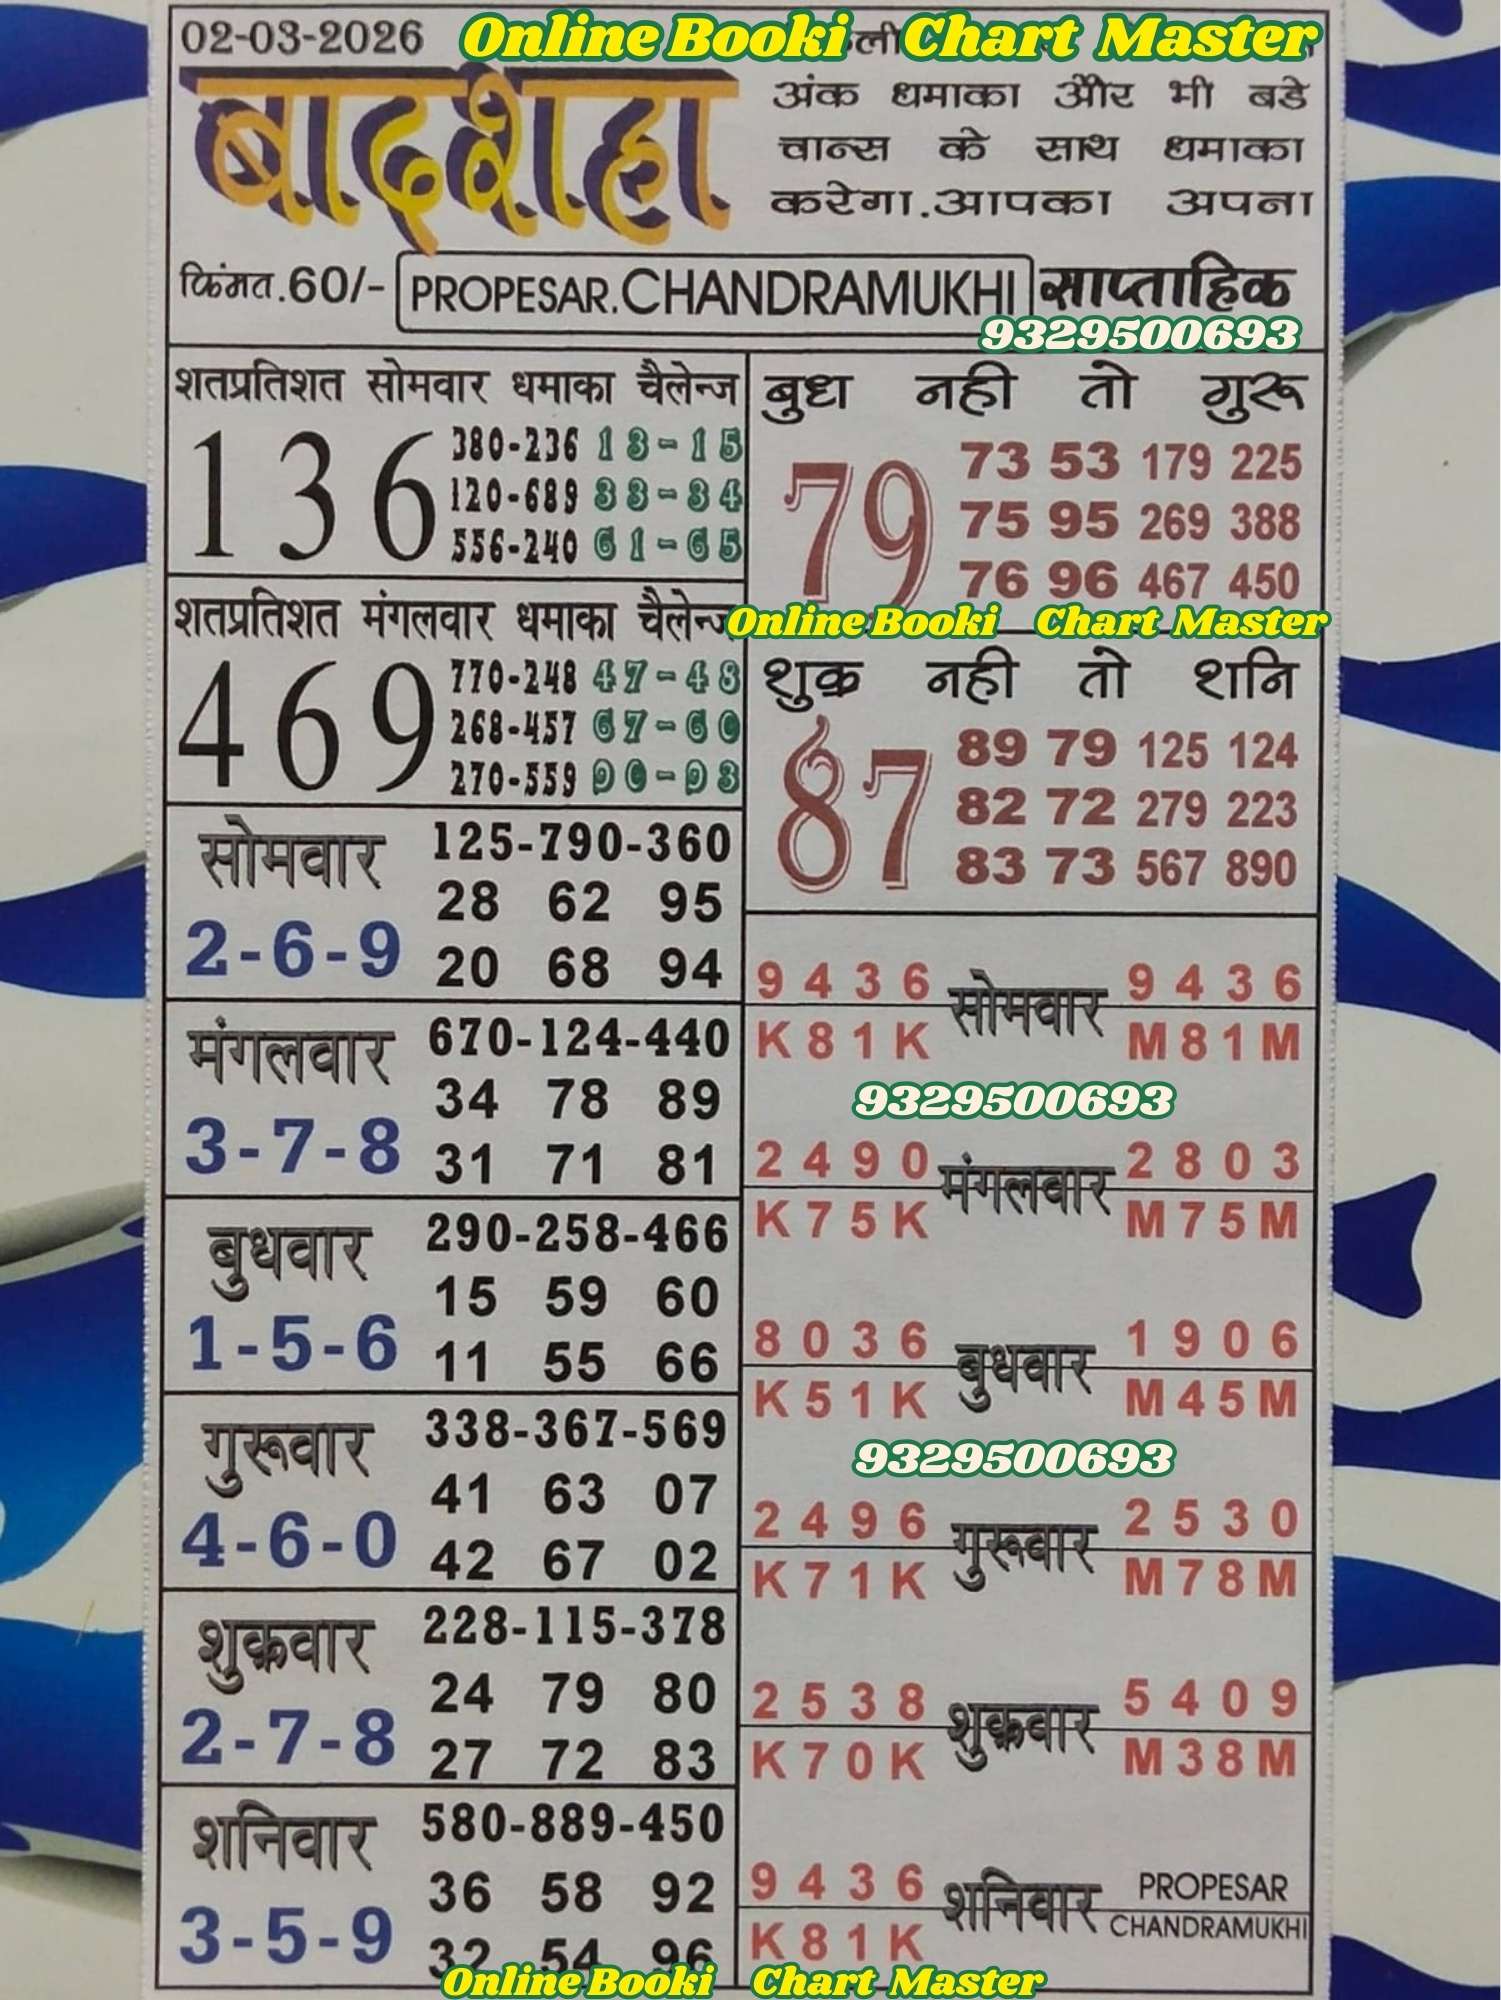 02-03-2026
Online Booki Chart Master
बादशहा
अंक धमाका और भी बडे
चान्स के साथ धमाका
करेगा.आपका अपना
किंमत.60/-
PROPESAR.CHANDRAMUKHI
साप्ताहिक
9329500693
शतप्रतिशत सोमवार धमाका चैलेन्ज
136
380-236 13-15
120-689 33-34
556-240 61-65
शतप्रतिशत मंगलवार धमाका चैलेन्ज
469
770-248 47-48
268-457 67-60
270-559 90-98
बुध नही तो गुरू
79
73 53 179 225
75 95 269 388
76 96 467 450
Online Booki Chart Master
शुक्र नही तो शनि
87
89 79 125 124
82 72 279 223
83 73 567 890
सोमवार
2-6-9
125-790-360
28 62 95
20 68 94
मंगलवार
3-7-8
670-124-440
34 78 89
31 71 81
बुधवार
1-5-6
290-258-466
15 59 60
11 55 66
गुरूवार
4-6-0
338-367-569
41 63 07
42 67 02
शुक्रवार
2-7-8
228-115-378
24 79 80
27 72 83
शनिवार
3-5-9
580-889-450
36 58 92
32 54 96
9436 सोमवार 9436
K81K M81M
9329500693
2490 मंगलवार 2803
K75K M75M
8036 बुधवार 1906
K51K M45M
9329500693
2496 गुरूवार 2530
K71K M78M
2538 शुक्रवार 5409
K70K M38M
9436 शनिवार PROPESAR
K81K CHANDRAMUKHI
Online Booki Chart Master